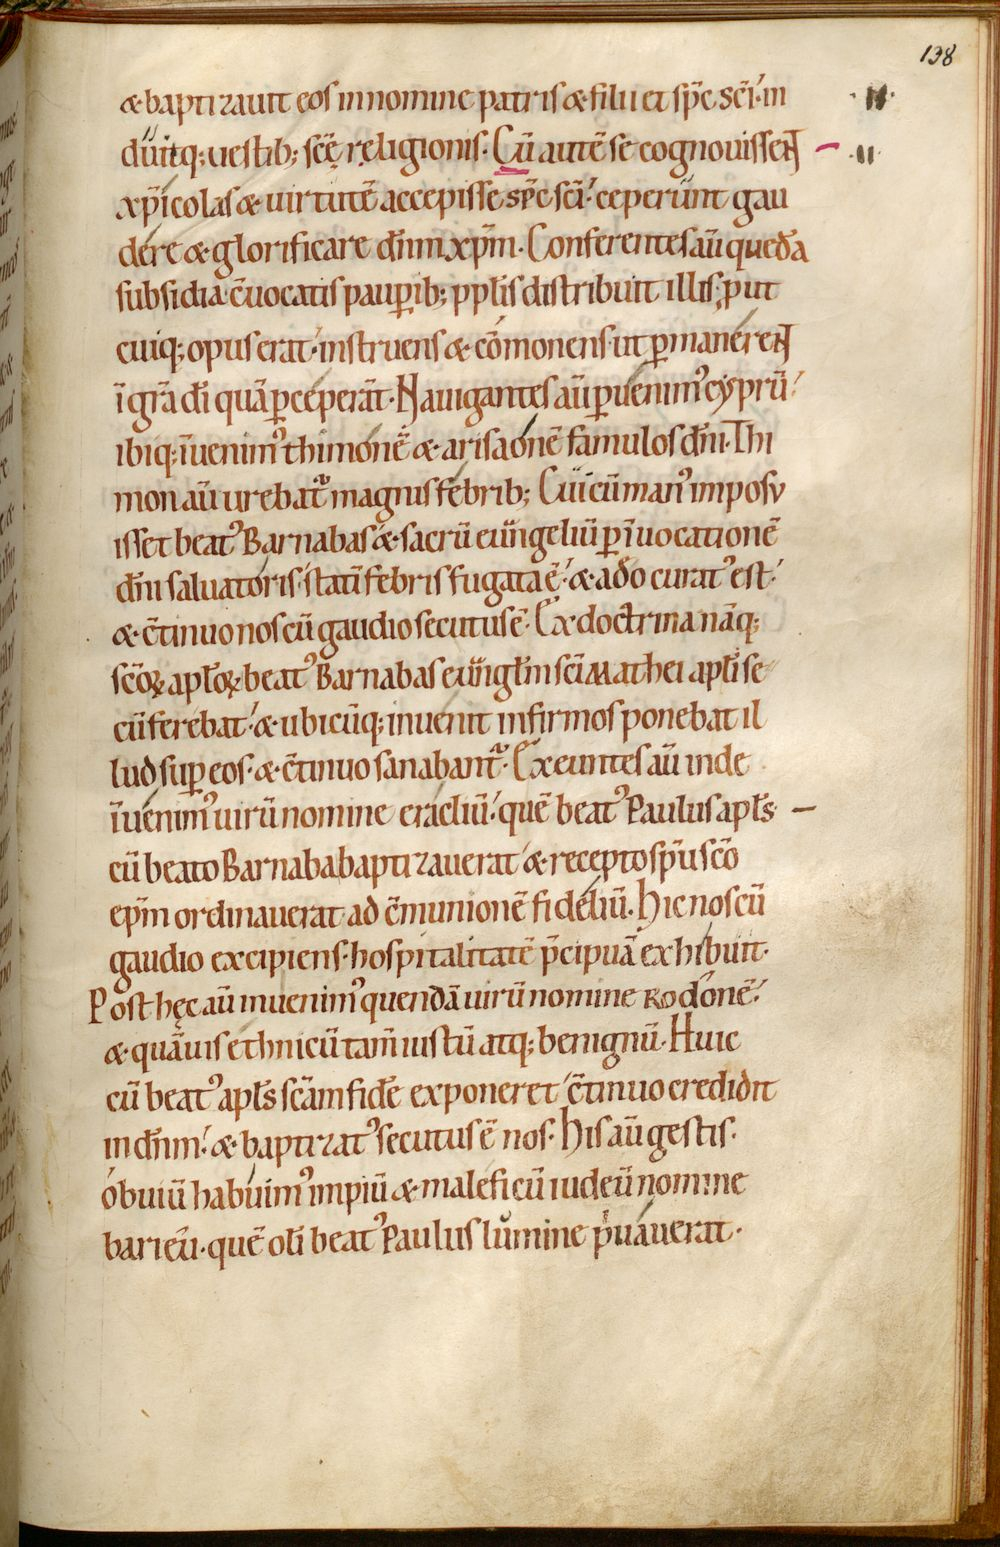 138
& baptizauit eos in nomine patris & filii et sp̄c sc̄i· in · II ·
duitq; uestib; sc̄ę religionis. Cū autē se cognouissent · II ·
xp̄icolas & uirtutē accepisse sp̄c sc̄i· ceperunt gau
dere & glorificare dn̄m xp̄m. Conferentes aū̄ quedā
subsidia c̄uocatis paup̱ib; pp̱lis distribuit illis, put
cuiq; opus erat· instruens & cōmonens ut p̱manerent
ī gr̄a dī quā p̱ceperāt. Nauigantes aū̄ p̱uenimꝰ cyprū·
ibiq; īuenimꝰ thimonē & arisaonē famulos dn̄i. Thi
mon aū̄ urebat᷑ magnis febrib; Cui cū manꝰ imposu
isset beatꝰ Barnabas & sacrū euuāgeliū p̱ īuocationē
dn̄i saluatoris· statī febris fugata ē· & adeo curatꝰ est·
& c̄tinuo nos cū gaudio secutus ē. Ex doctrina nāq;
sc̄oꝝ apl̄oꝝ beatꝰ Barnabas euuāgl̄m sc̄i Mathei apl̄i se
cū ferebat· & ubicūq; inuenit infirmos ponebat il
lud sup̱ eos· & c̄tinuo sanabant᷑. Exeuntes aū̄ inde
īuenimꝰ uirū nomine eracliū· quē beatꝰ Paulus apl̄s
cū beato Barnaba baptizauerat· & recepto sp̄u sc̄o
ep̄m ordinauerat ad c̄munionē fideliū. Hic nos cū
gaudio excipiens· hospitalitatē p̄cipuā exhibuit·
Post hęc aū̄ inuenimꝰ quendā uirū nomine Rodonē·
& quāuis ethnicū tam̄ iustū atq; benignū. Huic
cū beatꝰ apl̄s sc̄am fidē exponeret· c̄tinuo credidit
in dn̄m· & baptizatꝰ secutus ē nos. His aū̄ gestis·
obuiū habuimꝰ impiū & maleficū iudeū nomine
barieū· quē olī beatꝰ Paulus lumine puauerat·